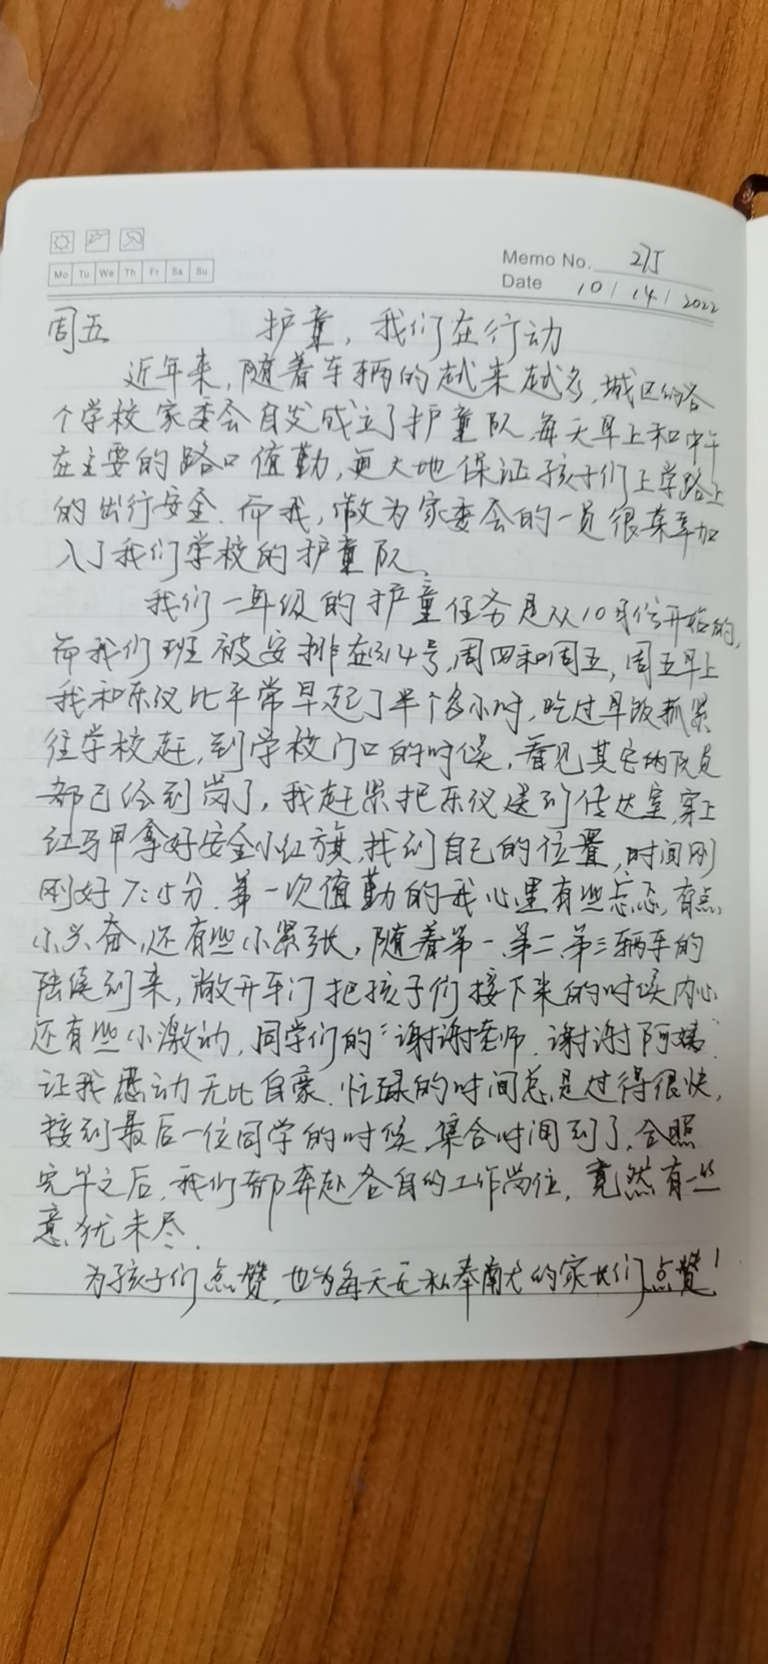 Mo Tu We Th Fr Sa Su
Memo No. 275
Date 10 / 14 / 2022
周五 护童，我们在行动
近年来，随着车辆的越来越多，城区的各
个学校家委会自发成立了护童队，每天早上和中午
在主要的路口值勤，更大地保证孩子们上学路上
的出行安全。而我，做为家委会的一员很荣幸加
入了我们学校的护童队。
我们一年级的护童任务是从10月份开始的，
而我们班被安排在314号，周四和周五，周五早上
我和乐仪比平常早起了半个多小时，吃过早饭抓紧
往学校赶，到学校门口的时候，看见其它的队员
都已经到岗了，我赶紧把乐仪送到传达室，穿上
红马甲拿好安全小红旗，找到自己的位置，时间刚
刚好7:15分。第一次值勤的我心里有些忐忑，有点
小兴奋，还有些小紧张，随着第一、第二、第三辆车的
陆续到来，敞开车门把孩子们接下来的时候内心
还有些小激动，同学们的“谢谢老师，谢谢阿姨”
让我感动无比自豪。忙碌的时间总是过得很快，
接到最后一位同学的时候，集合时间到了，合照
完毕之后，我们都奔赴各自的工作岗位，竟然有一些
意犹未尽。
为孩子们点赞，也为每天无私奉献的家长们点赞！